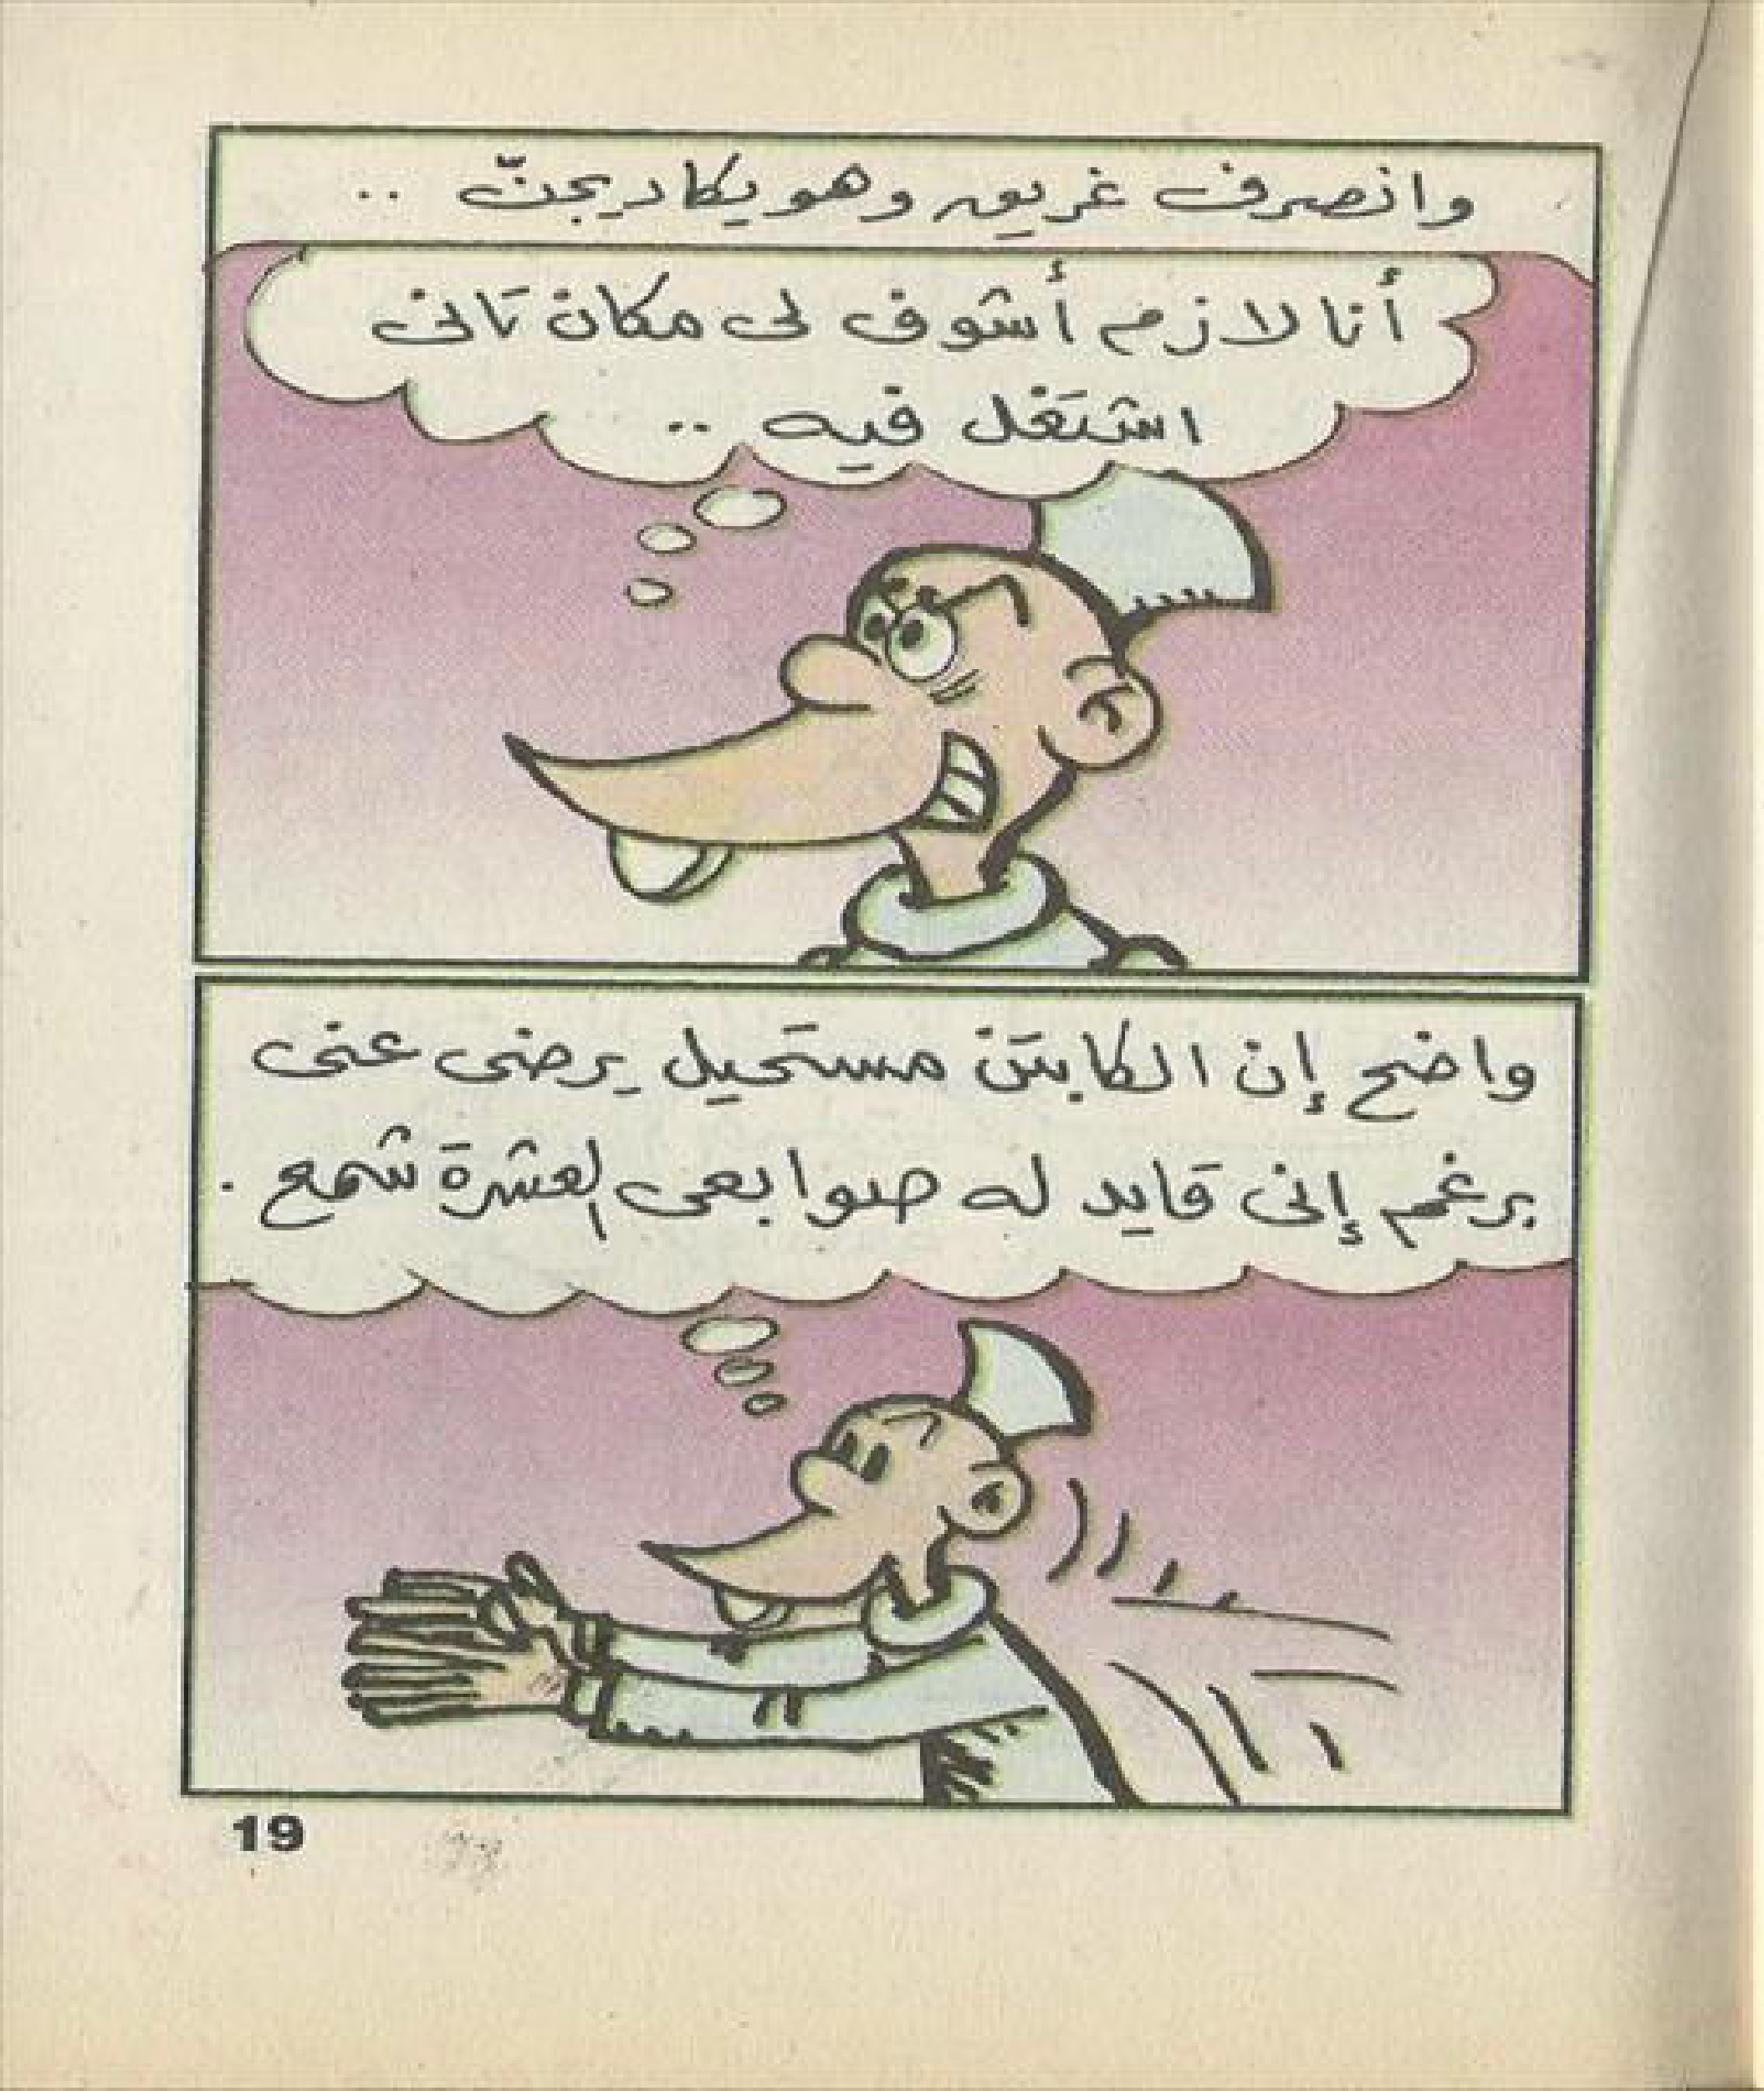 وانصرف غريق وهو يكاد يجنّ ..
أنا لازم أشوف لى مكان تَانى
اشتَغل فيه ..
واضح إن الكابتَن مستَحيل يرضى عنى
برغم إنى قَايد له صوابعى العشرة شمع .
19